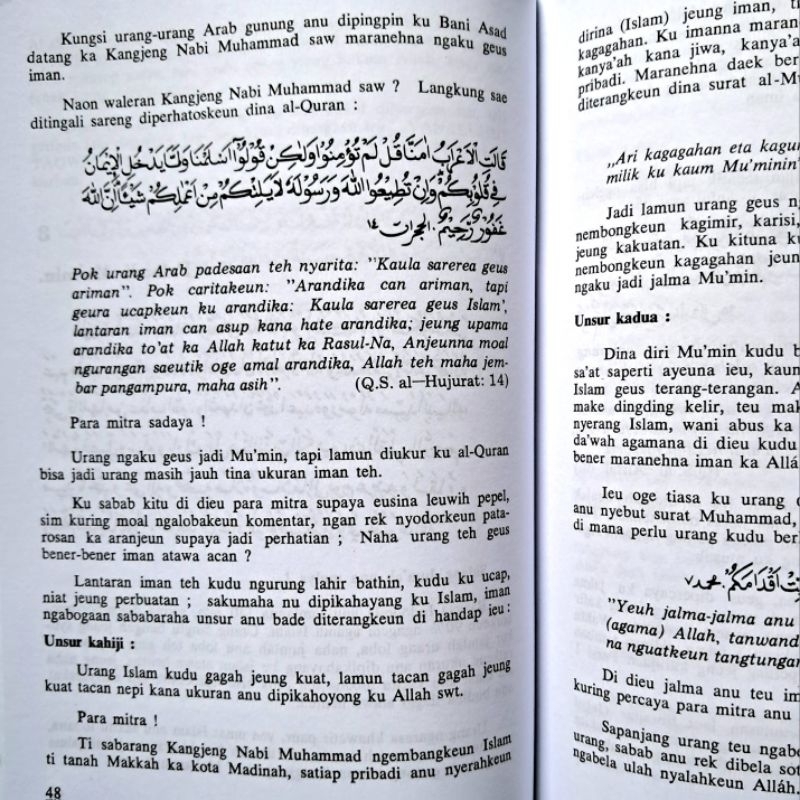 Kungsi urang-urang Arab gunung anu dipingpin ku Bani Asad
datang ka Kangjeng Nabi Muhammad saw maranehna ngaku geus
iman.
Naon waleran Kangjeng Nabi Muhammad saw ? Langkung sae
ditingali sareng diperhatoskeun dina al-Quran :
قَالَتِ الْأَعْرَابُ اٰمَنَّا قُلْ لَمْ تُؤْمِنُوْا وَلٰكِنْ قُوْلُوْٓا اَسْلَمْنَا وَلَمَّا يَدْخُلِ الْاِيْمَانُ
فِيْ قُلُوْبِكُمْ وَاِنْ تُطِيْعُوا اللّٰهَ وَرَسُوْلَهٗ لَا يَلِتْكُمْ مِنْ اَعْمَالِكُمْ شَيْئًا اِنَّ اللّٰهَ
غَفُوْرٌ رَّحِيْمٌ. الحجرات ١٤
Pok urang Arab padesaan teh nyarita: "Kaula sarerea geus
ariman". Pok caritakeun: "Arandika can ariman, tapi
geura ucapkeun ku arandika: Kaula sarerea geus Islam',
lantaran iman can asup kana hate arandika; jeung upama
arandika to'at ka Allah katut ka Rasul-Na, Anjeunna moal
ngurangan saeutik oge amal arandika, Allah teh maha jem-
bar pangampura, maha asih". (Q.S. al—Hujurat: 14)
Para mitra sadaya !
Urang ngaku geus jadi Mu'min, tapi lamun diukur ku al-Quran
bisa jadi urang masih jauh tina ukuran iman teh.
Ku sabab kitu di dieu para mitra supaya eusina leuwih pepel,
sim kuring moal ngalobakeun komentar, ngan rek nyodorkeun pata-
rosan ka aranjeun supaya jadi perhatian ; Naha urang teh geus
bener-bener iman atawa acan ?
Lantaran iman teh kudu ngurung lahir bathin, kudu ku ucap,
niat jeung perbuatan ; sakumaha nu dipikahayang ku Islam, iman
ngabogaan sababaraha unsur anu bade diterangkeun di handap ieu:
Unsur kahiji :
Urang Islam kudu gagah jeung kuat, lamun tacan gagah jeung
kuat tacan nepi kana ukuran anu dipikahoyong ku Allah swt.
Para mitra !
Ti sabarang Kangjeng Nabi Muhammad ngembangkeun Islam
ti tanah Makkah ka kota Madinah, satiap pribadi anu nyerahkeun
48
dirina (Islam) jeung iman,
kagagahan. Ku imanna
kanya'ah kana jiwa, kanya'a
pribadi. Maranehna daek
diterangkeun dina surat al-M
,,Ari kagagahan eta
milik ku kaum Mu'minin
Jadi lamun urang geus
nembongkeun kagimir, karisi,
jeung kakuatan. Ku kituna
nembongkeun kagagahan jeun
ngaku jadi jalma Mu'min.
Unsur kadua :
Dina diri Mu'min kudu b
sa'at saperti ayeuna ieu, kaun
Islam geus terang-terangan. A
make dingding kelir, teu mak
nyerang Islam, wani abus ka
da'wah agamana di dieu kudu
bener maranehna iman ka Allá
Ieu oge tiasa ku urang
anu nyebut surat Muhammad,
di mana perlu urang kudu ber
اَقْدَامَكُمْ. محمد ٧
"Yeuh jalma-jalma anu
(agama) Allah, tanwand
na nguatkeun tangtungan
Di dieu jalma anu teu im
kuring percaya para mitra anu
Sapanjang urang teu ngab
urang, sabab anu rek dibela sot
ngabela ulah nyalahkeun Alláh.